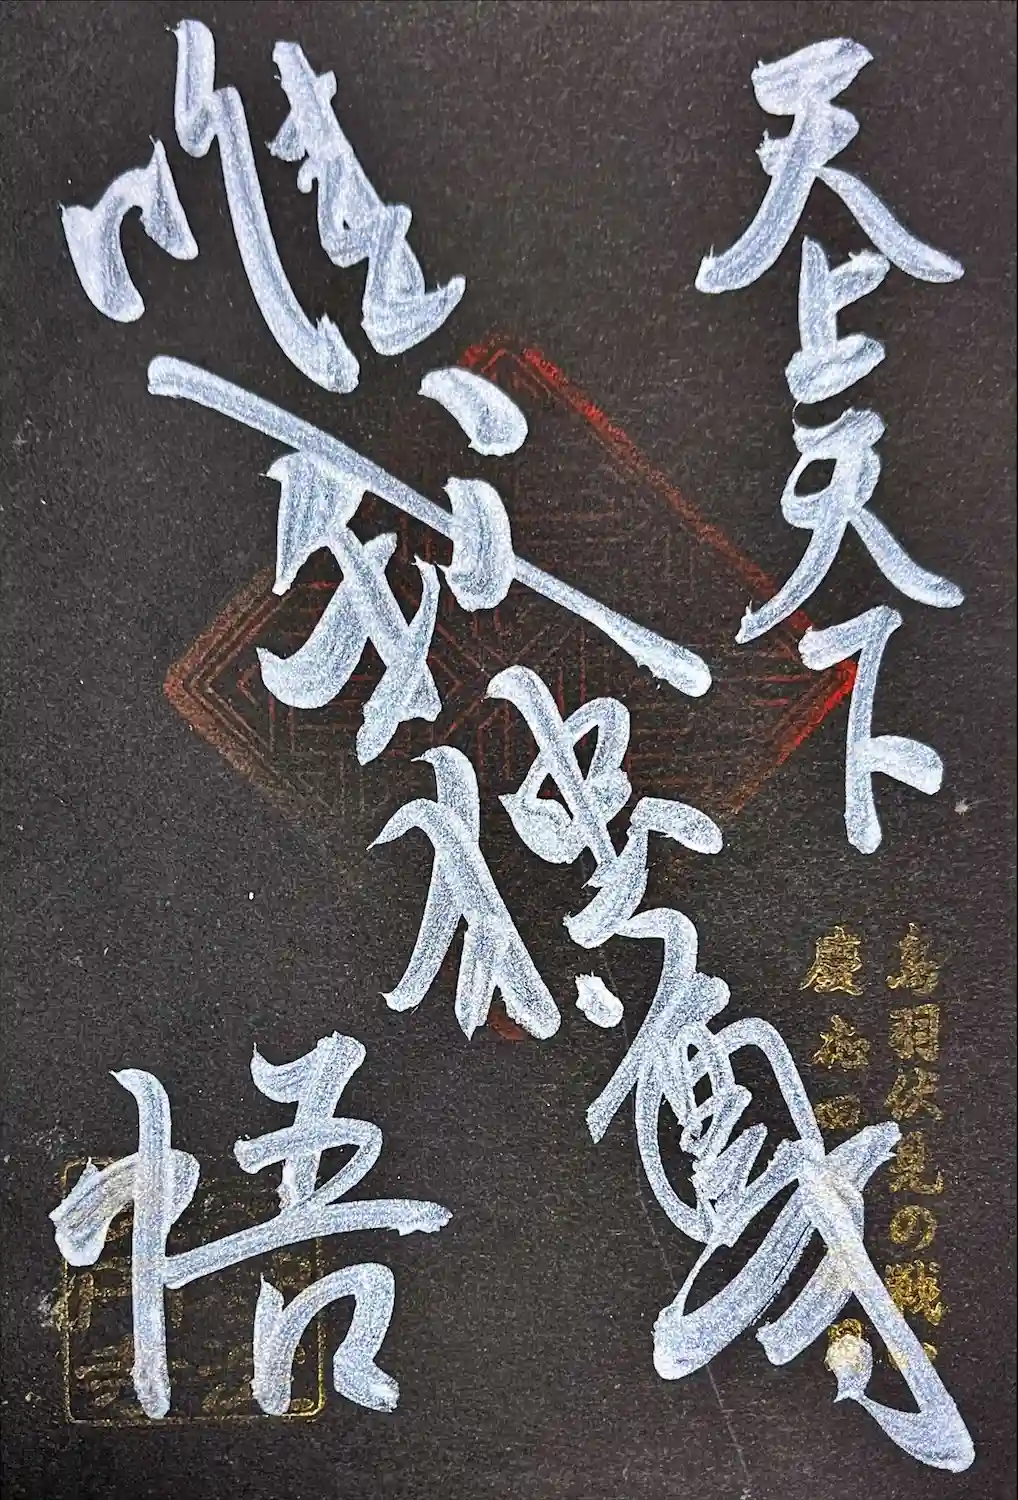 天上天下
唯我独尊
悟
鳥羽伏見の戦
慶応四